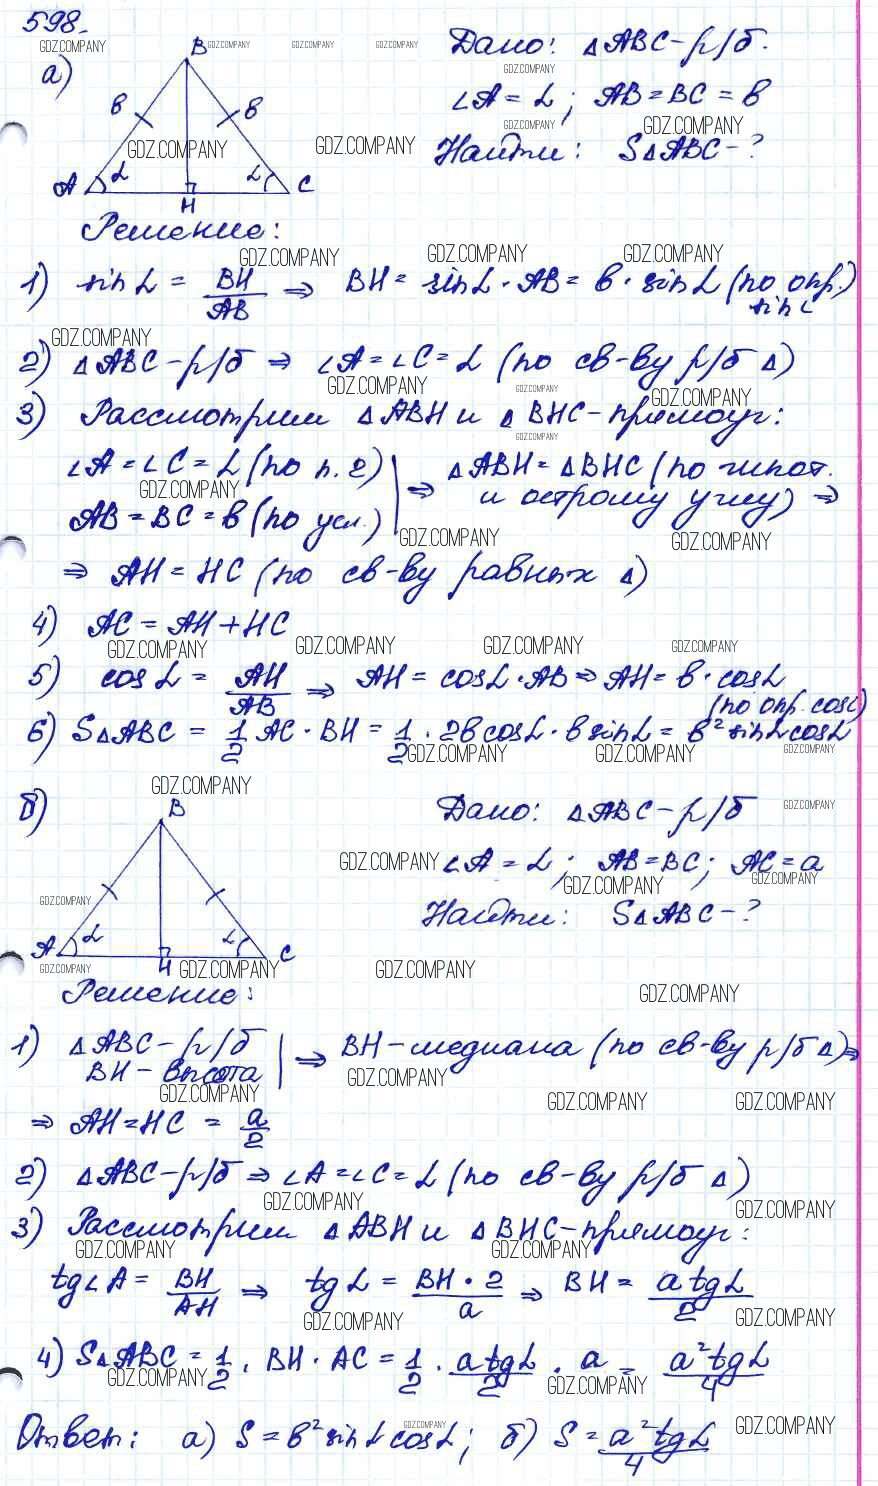 598.
а)
B
b
b
A
α
α
C
H
Дано: △ABC - р/б.
∠A = α; AB = BC = b
Найти: S△ABC - ?
Решение:
1) sin α = BH/AB ⇒ BH = sin α · AB = b · sin α (по опр.) sin α
2) △ABC - р/б ⇒ ∠A = ∠C = α (по св-ву р/б △)
3) Рассмотрим △ABH и △BHC - прямоуг:
∠A = ∠C = α (по п. 2) | ⇒ △ABH = △BHC (по гипот.
AB = BC = b (по усл.) | и острому углу) ⇒
⇒ AH = HC (по св-ву равных △)
4) AC = AH + HC
5) cos α = AH/AB ⇒ AH = cos α · AB ⇒ AH = b · cos α
(по опр. cos α)
6) S△ABC = 1/2 AC · BH = 1/2 · 2b cos α · b sin α = b² sin α cos α
б)
B
A
α
α
C
H
Дано: △ABC - р/б
∠A = α; AB = BC; AC = a
Найти: S△ABC - ?
Решение:
1) △ABC - р/б | ⇒ BH - медиана (по св-ву р/б △) ⇒
BH - высота |
⇒ AH = HC = a/2
2) △ABC - р/б ⇒ ∠A = ∠C = α (по св-ву р/б △)
3) Рассмотрим △ABH и △BHC - прямоуг:
tg∠A = BH/AH ⇒ tg α = BH · 2/a ⇒ BH = a tg α/2
4) S△ABC = 1/2 · BH · AC = 1/2 · a tg α/2 · a = a² tg α/4
Ответ: а) S = b² sin α cos α; б) S = a² tg α/4
GDZ.COMPANY